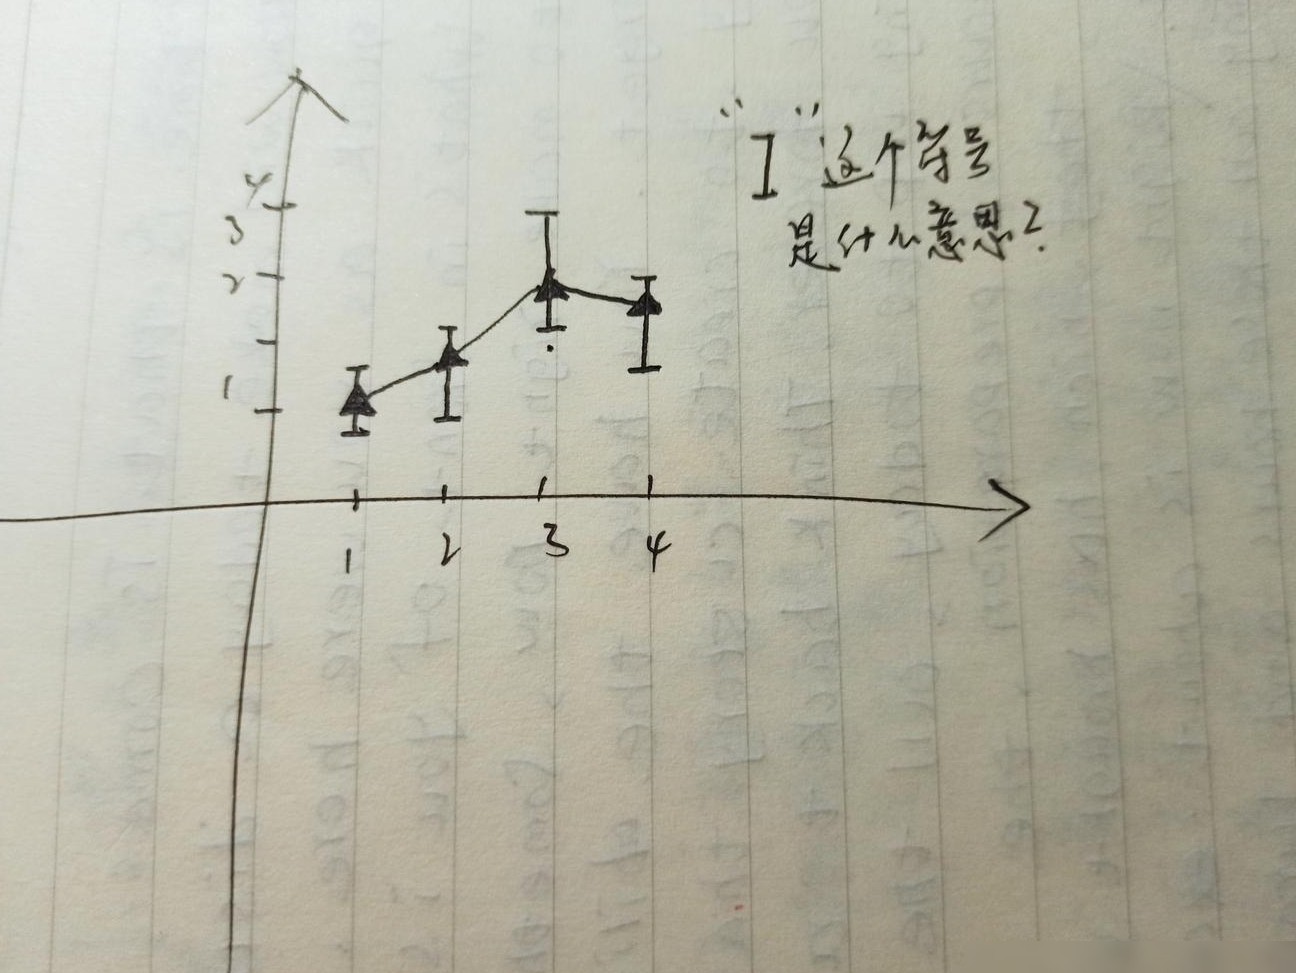 "I"这个符号
是什么意思?
4
3
2
1
1 2 3 4